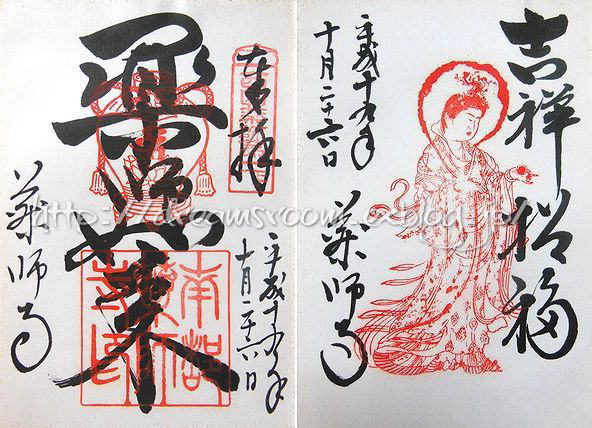 奉拝
平成十九年
十月二十六日
薬師如来
薬師寺
南都
薬師
寺印
吉祥招福
平成十九年
十月二十六日
薬師寺
http://dreamsroom.exblog.jp/